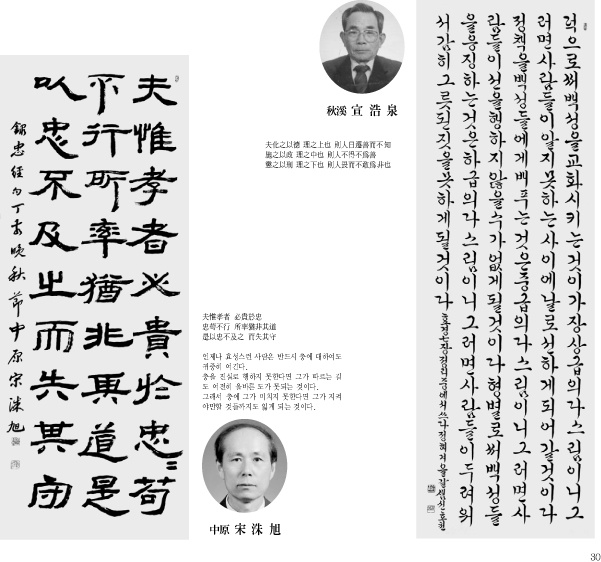 秋溪 宣 浩 泉
夫化之以德 理之上也 則人日遷善而不知
施之以政 理之中也 則人不得不爲善
懲之以刑 理之下也 則人畏而不敢爲非也
덕으로써백성을교화시키는것이가장상급의다스림이니그
러면사람들이알지못하는사이에날로선하게되어갈것이다
정책을백성들에게베푸는것은중급의다스림이니그러면사
람들이선을행하지않을수가없게될것이다형벌로써백성들
을응징하는것은하급의다스림이니그러면사람들이두려워
서감히그릇된짓을못하게될것이다
夫惟孝者必貴於忠〻苟
不行所率猶非其道是
以忠不及之而失其守
錄忠經句丁亥晚秋節中原宋洙旭
夫惟孝者 必貴於忠
忠苟不行 所率猶非其道
是以忠不及之 而失其守
언제나 효성스런 사람은 반드시 충에 대하여도
귀중히 여긴다.
충을 진실로 행하지 못한다면 그가 따르는 길
도 여전히 올바른 도가 못되는 것이다.
그래서 충에 그가 미치지 못한다면 그가 지켜
야만할 것들까지도 잃게 되는 것이다.
中原 宋 洙 旭
30